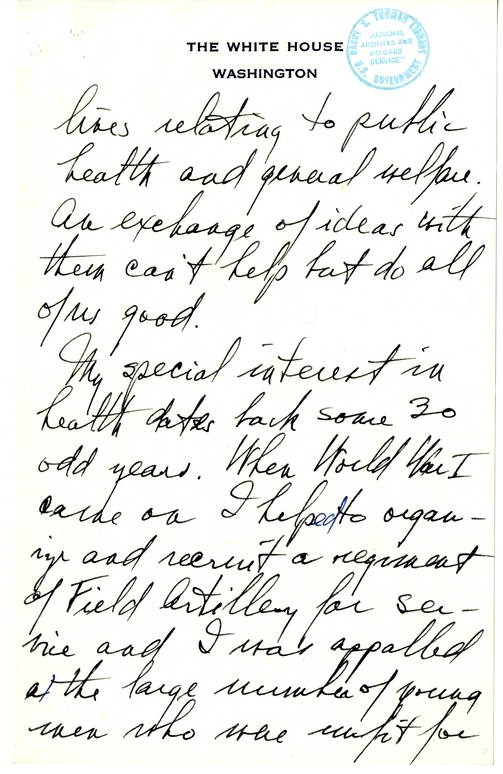 THE WHITE HOUSE
WASHINGTON
HARRY S. TRUMAN LIBRARY
"NATIONAL
ARCHIVES AND
RECORDS
SERVICE"
U.S. GOVERNMENT
lives relating to public
health and general welfare.
An exchange of ideas with
them can't help but do all
of us good.
My special interest in
health dates back some 30
odd years. When World War I
came on I helped to organ-
ize and recruit a regiment
of Field Artillery for ser-
vice and I was appalled
at the large number of young
men who were unfit for